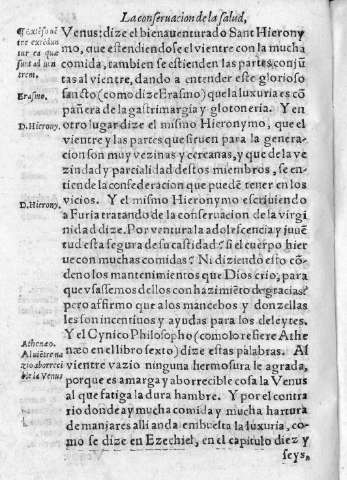 La conseruacion de la salud,
Venus: dize el bienauenturado Sant Hierony
mo, que estendiendose el vientre con la mucha
comida, tambien se estienden las partes conjũ
tas al vientre, dando a entender este glorioso
sancto (como dize Erasmo) que la luxuria es cõ
pañera de la gastrimargia y glotoneria. Y en
otro lugar dize el mismo Hieronymo, que el
vientre y las partes que siruen para la genera-
cion son muy vezinas y cercanas, y que de la ve
zindad y parcialidad destos miembros, se en-
tiende la confederacion que puedẽ tener en los
vicios. Y el mismo Hieronymo escriuiendo
a Furia tratando de la conseruacion de la virgi
nidad dize. Por ventura la adolescencia y juuẽ
tud esta segura de su castidad? si el cuerpo hier
ue con muchas comidas? Ni diziendo esto cõ-
deno los mantenimientos que Dios crio, para
que vsassemos dellos con hazimiẽto de gracias:
pero affirmo que a los mancebos y donzellas
les son incentiuos y ayudas para los deleytes.
Y el Cynico Philosopho (como lo refiere Athe
næo en el libro sexto) dize estas palabras. Al
vientre vazio ninguna hermosura le agrada,
porque es amarga y aborrecible cosa la Venus
al que fatiga la dura hambre. Y por el contra
rio donde ay mucha comida y mucha hartura
de manjares alli anda enbuelta la luxuria, co-
mo se dize en Ezechiel, en el capitulo diez y
seys,
tre extẽdun
tur ea quæ
sunt ad uen
trem.
Erasmo.
D. Hierony.
D. Hierony.
Athenæo.
Al uiẽtre ua
zio aborreci
ble la Venus